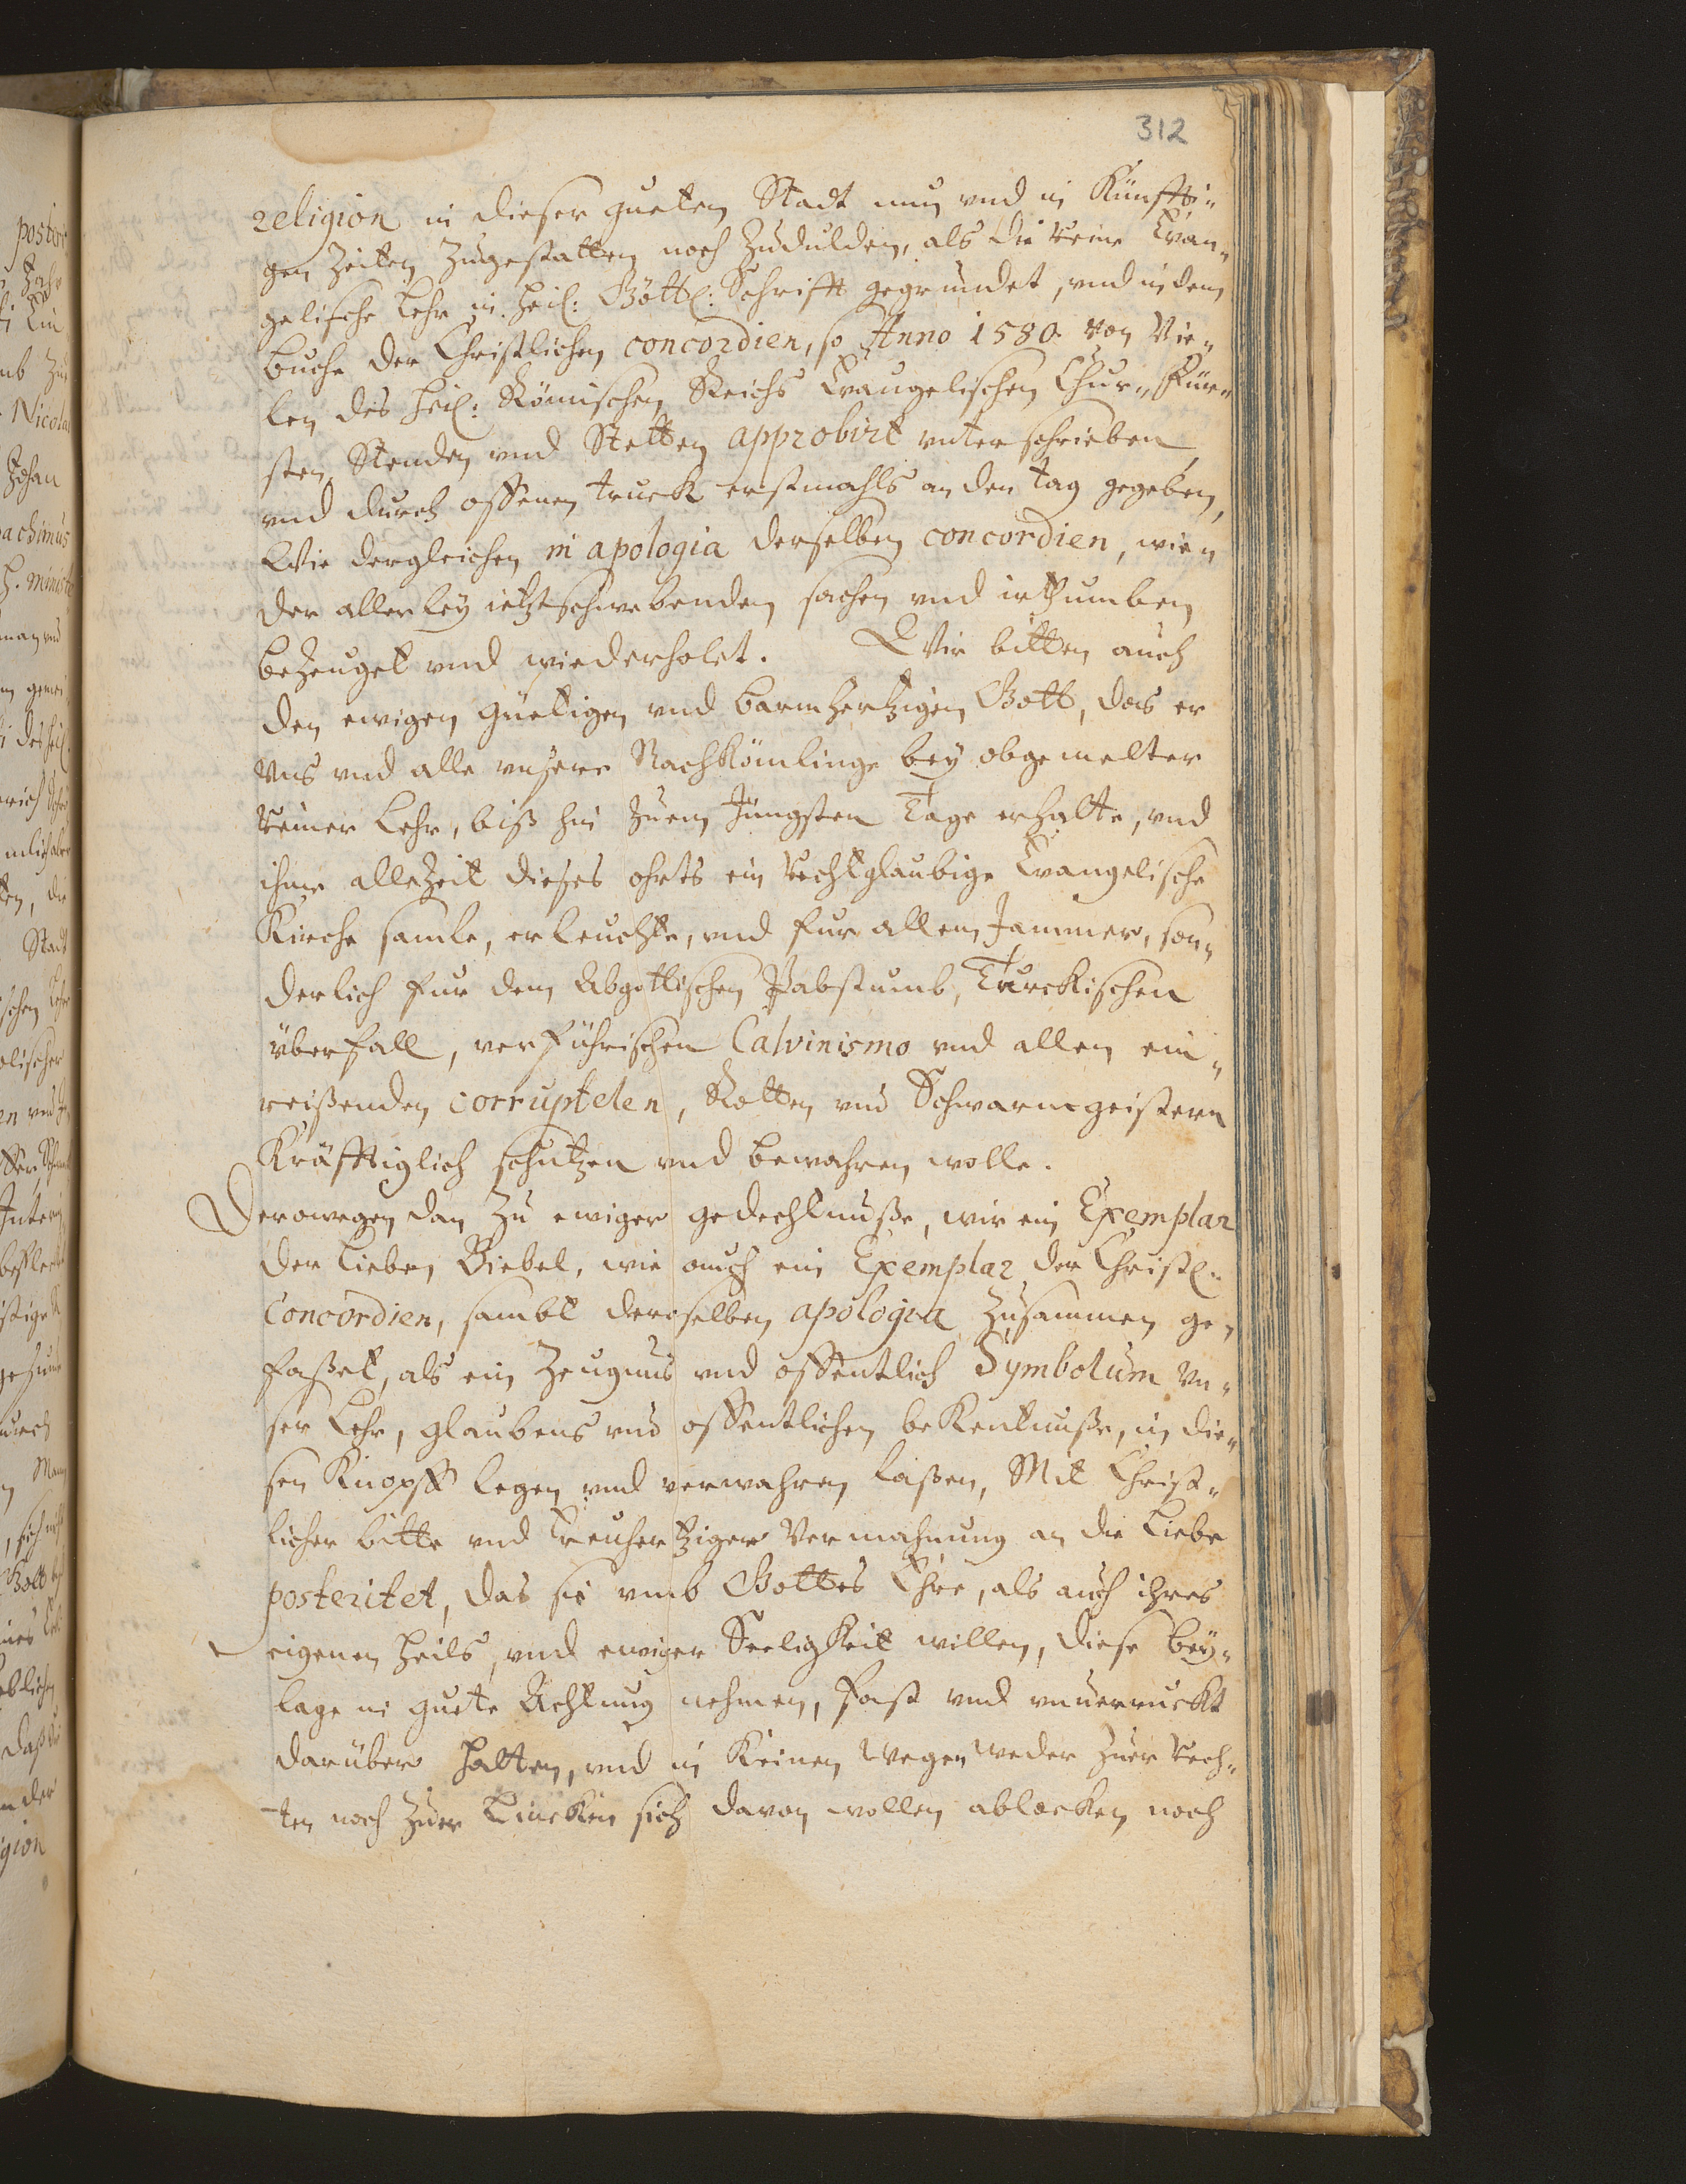 312
religion in dieser gueten Stadt nun vnd in Künffti„
gen Zeiten Zugestatten noch Zudulden, als die reine Evan„
gelische Lehr in heil: Göttl: Schrifft gegründet, vnd in dem
buche der Christlichen concordien, so Anno 1580. von Vie„
len des heil: Römischen Reichs Evangelischen Chur„ Für„
sten Stenden vnd Stetten approbirt vnterschrieben
vnd durch offenen truck erstmahls an den tag gegeben,
Wie dergleichen in apologia derselben concordien, wie„
der allerley ietztschwebenden sachen vnd irthumben
bezeuget vnd wiederholet. Wir bitten auch
den ewigen güetigen vnd barmhertzigen Gott, das er
vns vnd alle vnsere Nachkömlinge bey obgemelter
reiner Lehr, biß hin zuem Jüngsten Tage erhalte, vnd
ihme allezeit dieses ohrts ein rechtglaubige Evangelische
Kirche samle, erleuchte, vnd fur allem Jammer, son„
derlich fur dem Abgottischen Pabstumb, Turckischen
überfall, verführischen Calvinismo vnd allen ein„
reißenden corruptelen, Rotten vnd Schwarmgeistern
Kräfftiglich schutzen vnd bewahren wolle.
Derowegen dan Zu ewiger gedechtnuße, wir ein Exemplar
der lieben Biebel, wie auch ein Exemplar der Christl:
Concordien, sambt deroselben apologia zusammen ge„
faßet, als ein Zeugnus vnd offentlich Symbolum vn„
ser Lehr, glaubens vnd offentlichen bekentnuße, in die„
sen Knopff legen vnd verwahren laßen, Mit Christ„
licher bitte vnd treuhertziger Vermahnung an die liebe
posteritet, das sie vmb Gottes Ehre, als auch ihres
eigenen heils, vnd ewiger Seeligkeit willen, diese bey„
lage in guete Achtung nehmen, fast vnd vnuerruckt
darüber halten, vnd in Keinen wegen weder zuer rech„
ten noch zuer Lincken sich davon wollen ablocken noch